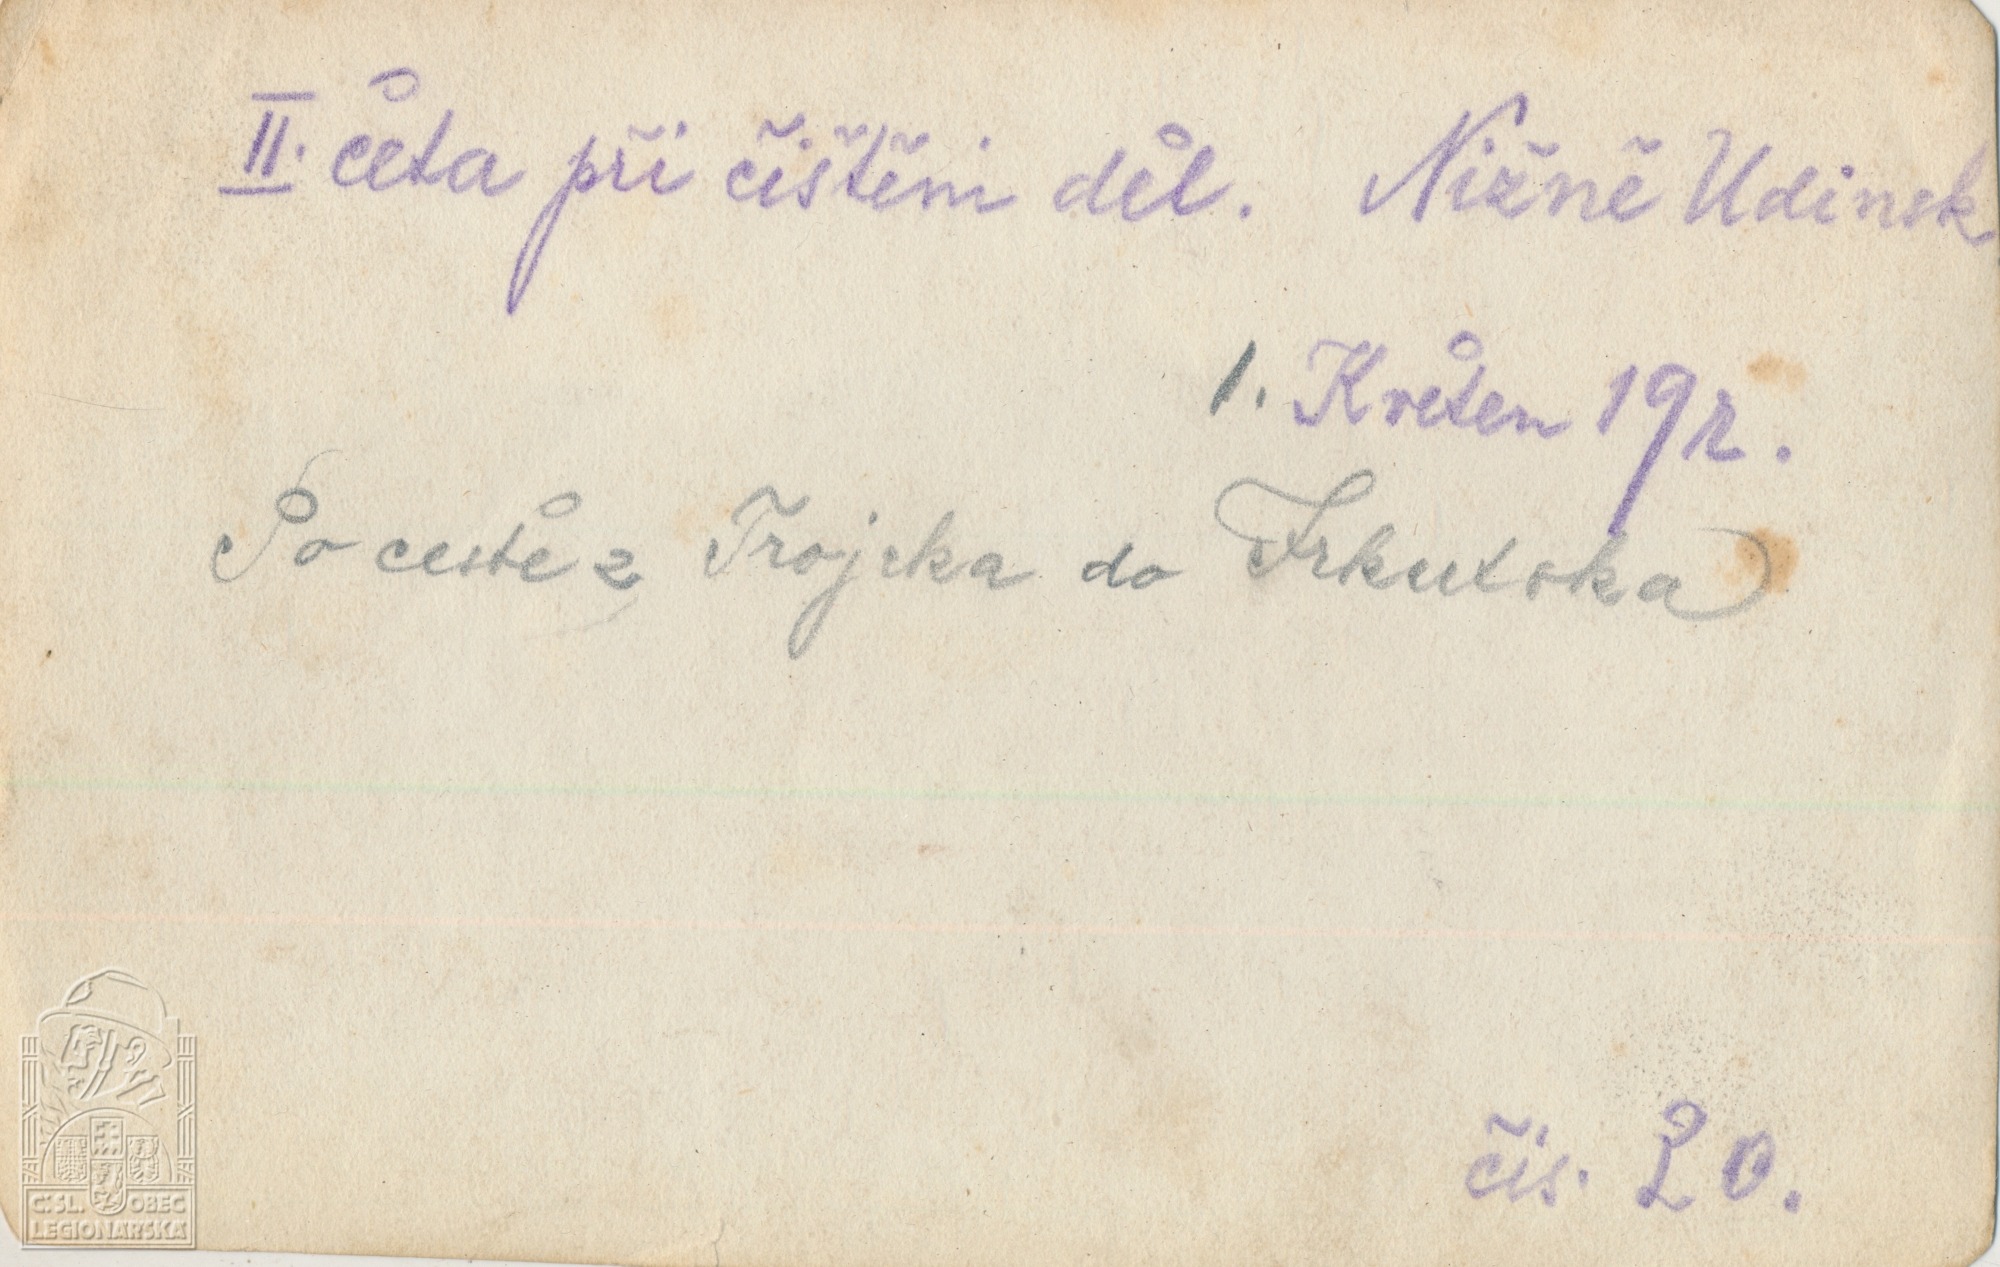 II. četa při čištěni děl. Nižně Udinsk
1. Květen 19 r.
Po cestě z Trojcka do Irkutska
čis. 20.
Č.SL. OBEC
LEGIONÁŘSKÁ